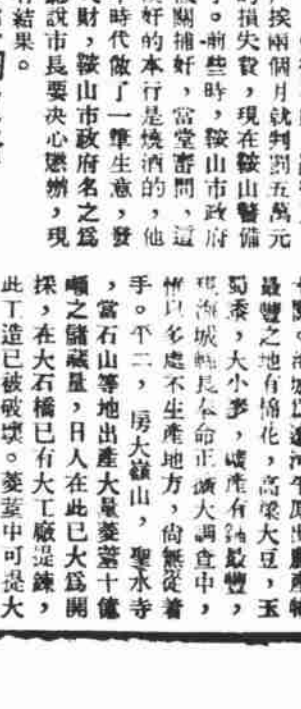 挨兩個月就判罰五萬元
的損失費，現在鞍山警備
。前些時，鞍山市政府
關捕奸，當堂審問，這
奸的本行是燒酒的，他
時代做了一筆生意，發
財，鞍山市政府名之爲
說市長要决心懲辦，現
結果。
最豐之地有棉花，高梁大豆，玉
蜀黍，大小麥，礦產有 最豐，
現海城縣長奉命正擴大調查中，
惟以多處不生產地方，尙無從着
手。平二，房大嶺山，聖水寺
，當石山等地出產大量菱蓥十億
噸之儲藏量，日人在此已大爲開
採，在大石橋已有大工廠提鍊，
此工造已被破壞。菱蓥中可提大